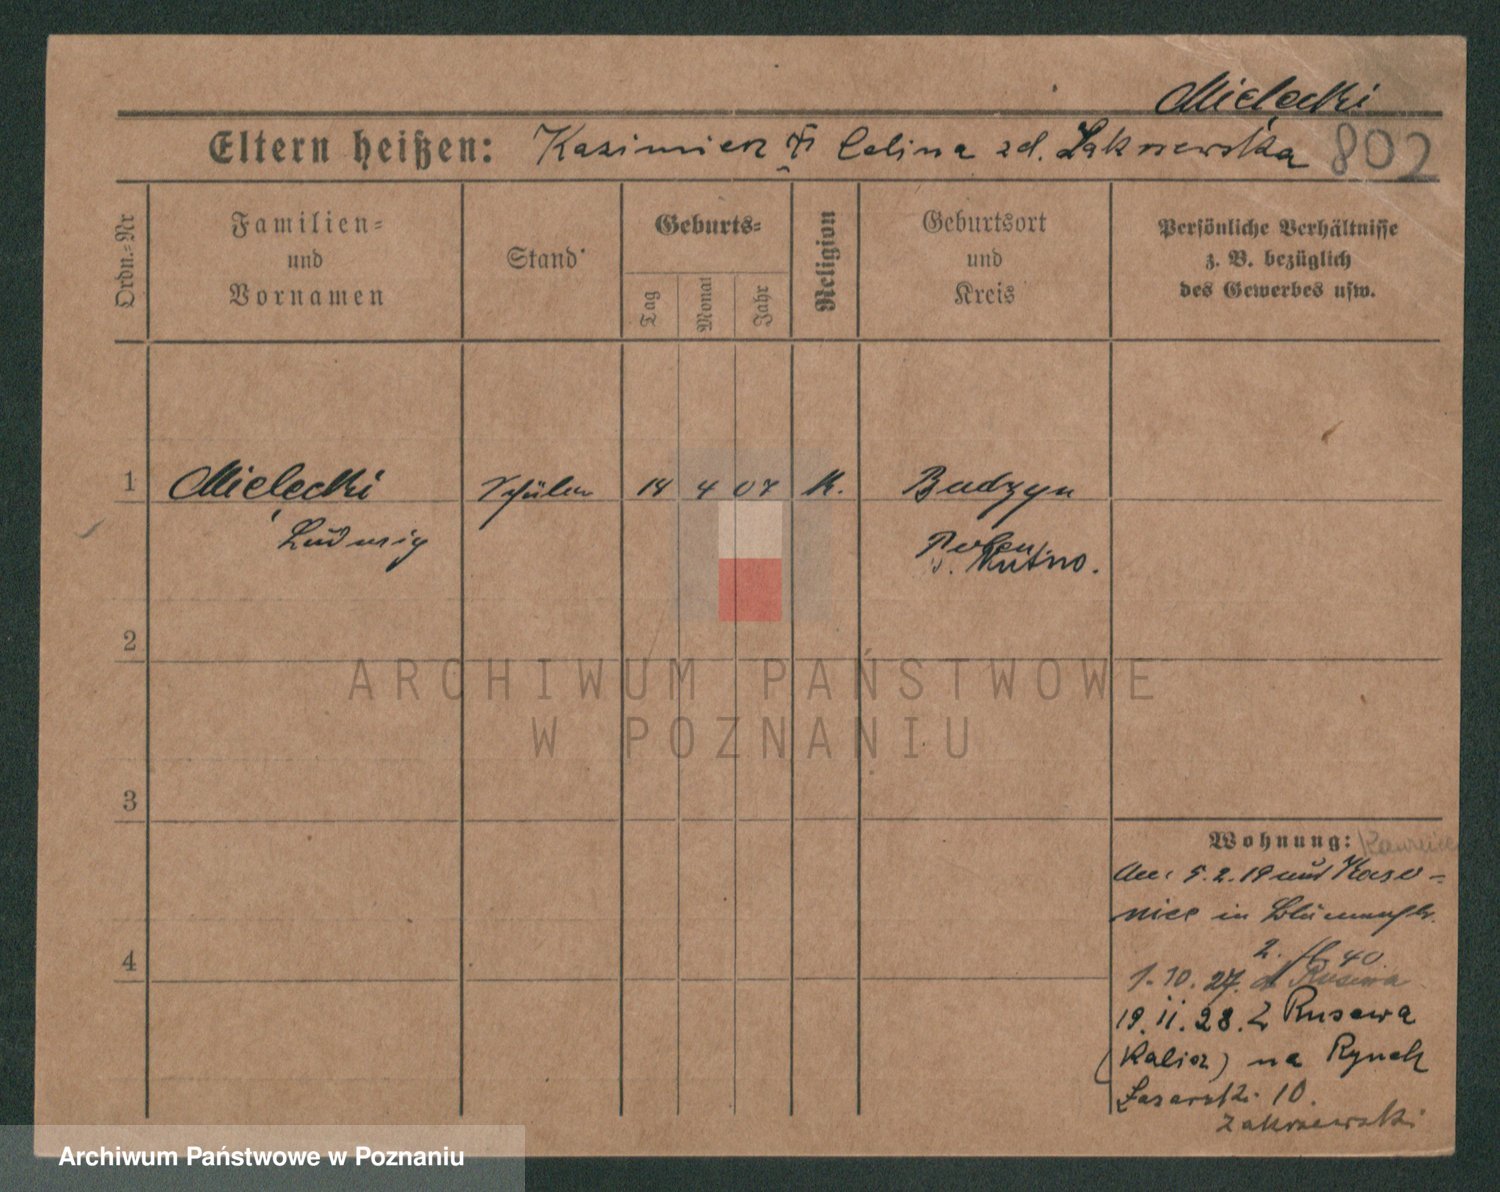 Mielęcki
Eltern heißen: Kazimierz & Celina zd. Zakrzewska 802
Ordn.=Nr
Familien=
und
Vornamen
Stand
Geburts=
Tag
Monat
Jahr
Religion
Geburtsort
und
Kreis
Persönliche Verhältnisse
z. B. bezüglich
des Gewerbes usw.
1 Mielęcki Schüler 14 4 07 K. Budzyn
Ludwig Polen
Kutno.
2
ARCHIWUM PAŃSTWOWE
W POZNANIU
3
Wohnung:
5.2.19 aus
in
2. 40
1.10.27. Rusiewa
19.11.28. Z Rusewa
(Kalisz) na Rynek
Łazarski 10.
Zakrzewski
4
Archiwum Państwowe w Poznaniu